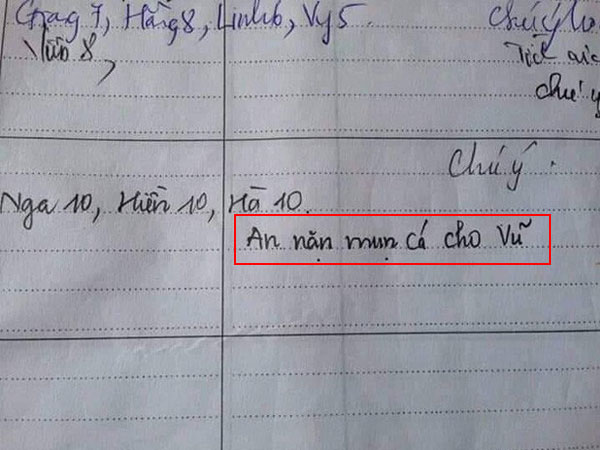 Giang 7, Hằng 8, Linh 6, Vy 5. Chú ý
8,
Tích
chú ý
Chú ý.
Nga 10, Hiền 10, Hà 10.
An nặn mụn cá cho Vũ